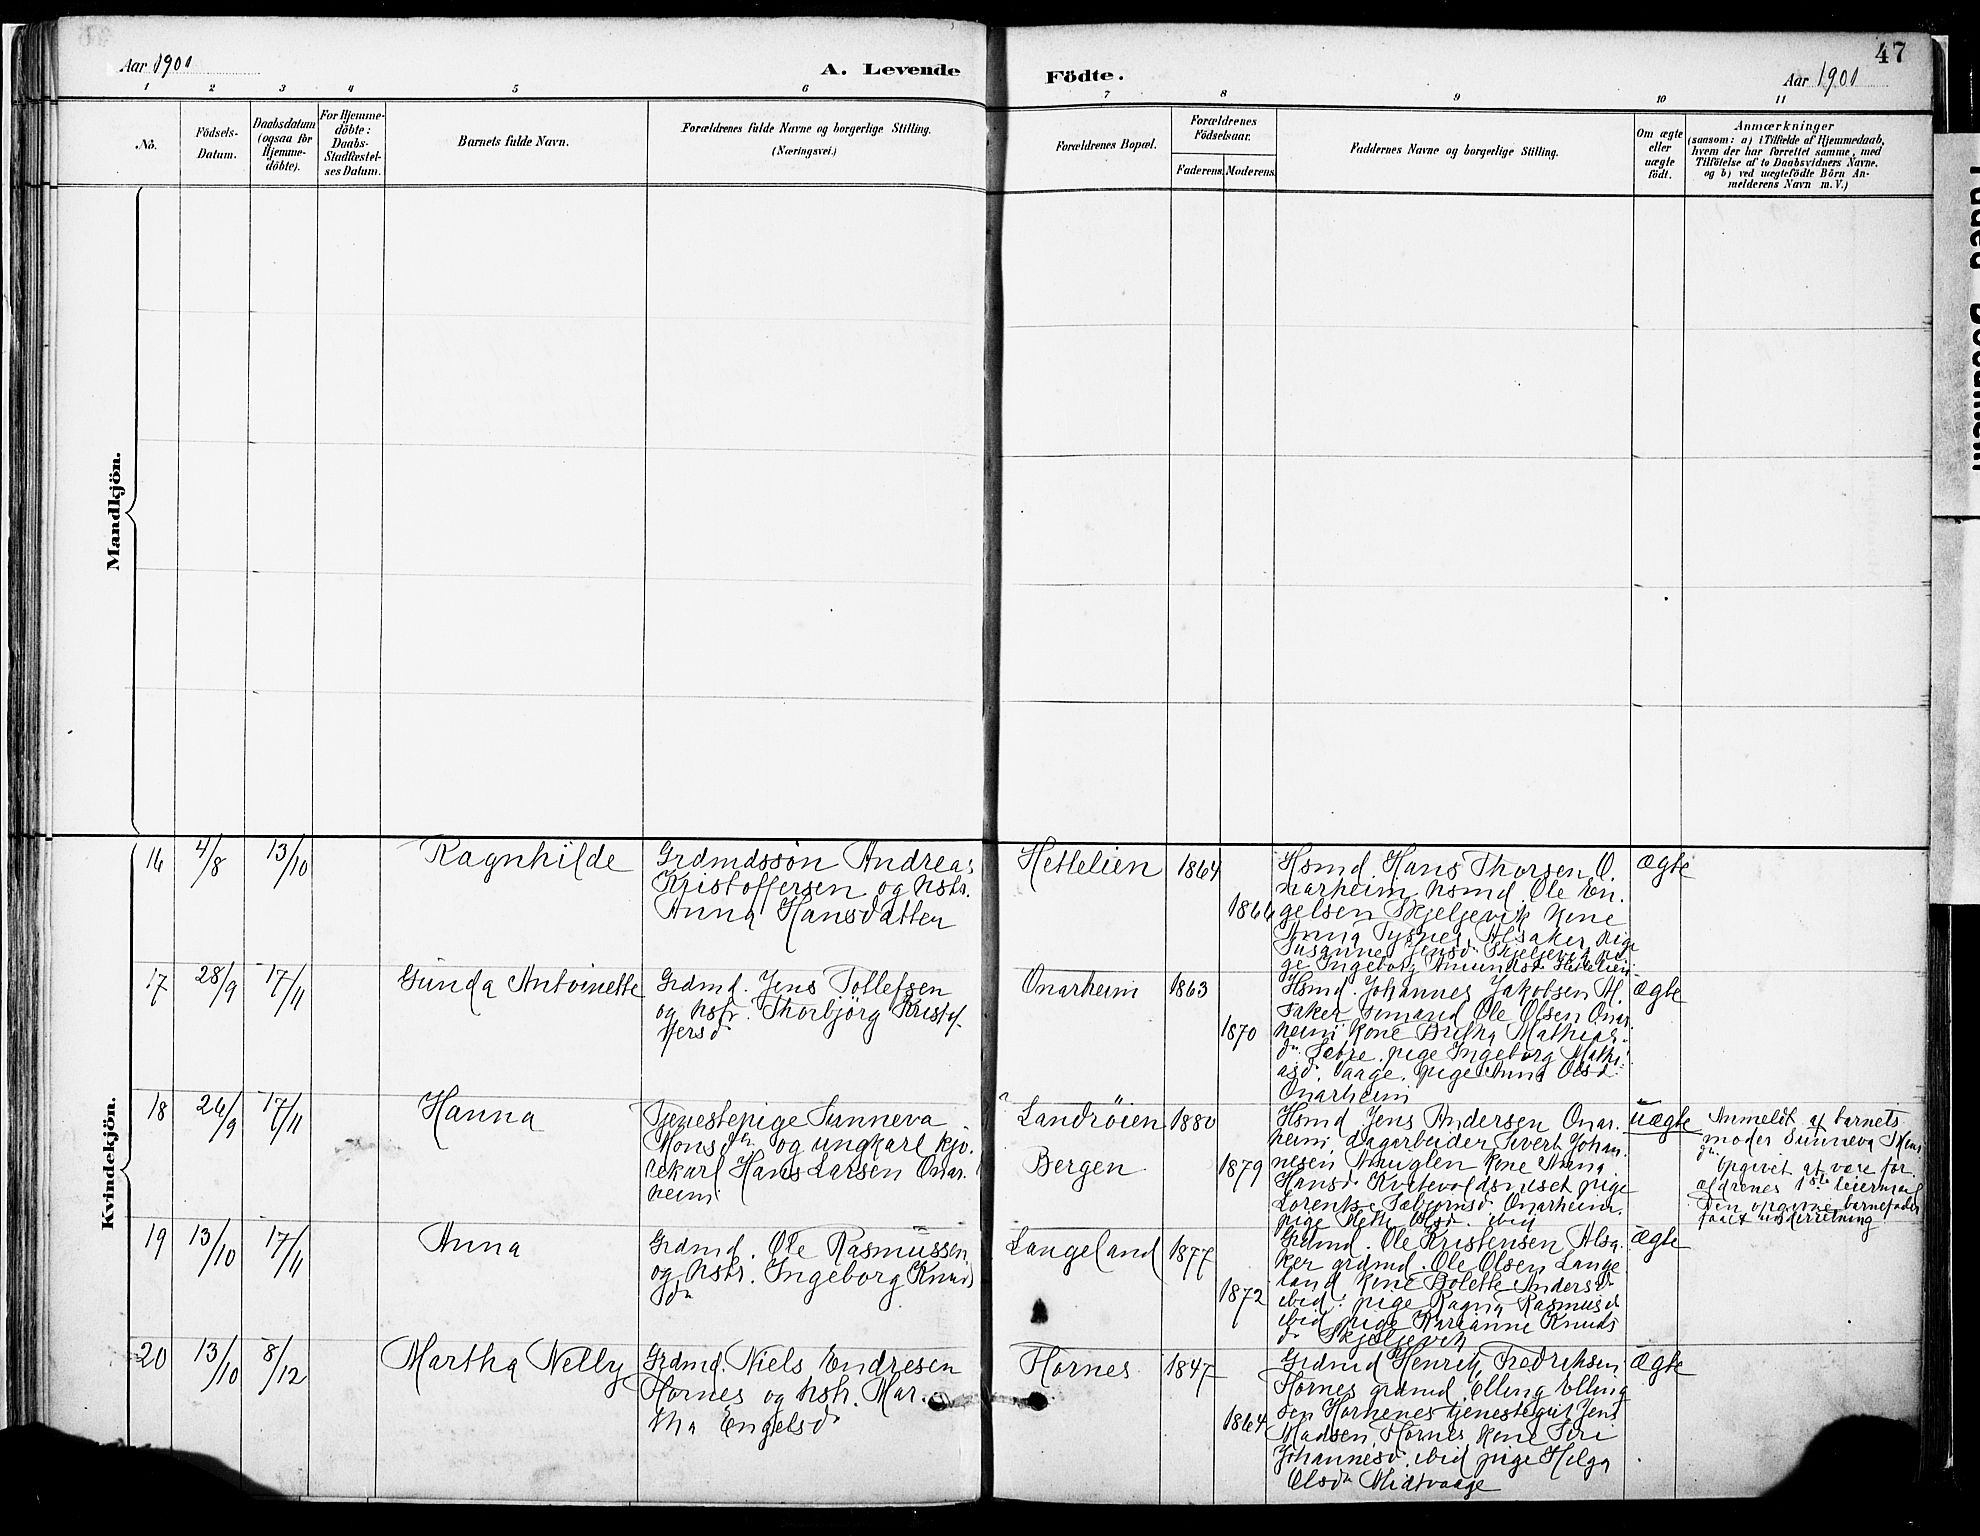 47
Aar 1901
A. Levende
Födte.
Aar 1901
1 2 3 4 5 6 7 8 9 10 11
No.
Födsels-
Datum.
Daabsdatum
(ogsaa for
Hjemme-
döbte).
For Hjemme-
döbte:
Daabs-
Stadfæstel-
ses Datum.
Barnets fulde Navn.
Forældrenes fulde Navne og borgerlige Stilling.
(Næringsvei.)
Forældrenes Bopæl.
Forældrenes
Födselsaar.
Faderens.
Moderens.
Faddernes Navne og borgerlige Stilling.
Om ægte
eller
uægte
födt.
Anmærkninger
(saasom: a) i Tilfælde af Hjemmedaab,
hvem der har forrettet samme, med
Tilföielse af to Daabsvidners Navne,
og b) ved uægtefödte Börn An-
melderens Navn m. V.)
Mandkjön.
Kvindekjön.
16
4/8
13/10
Ragnhilde
Grdmdssön Andreas
Kristoffersen og hstr.
Anna Hansdatter
Hettelien
1864
1866
Hsmd. Hans Thorsen O.
narheim, hsmd. Ole En-
gelsen Skjeljevik kone
Anna Tysnes, Alsaker, pige
Susanne Jensd. Skjeljevik pi-
ge Ingeborg Amundsd. Hettelien
ægte
17
28/9
17/11
Gunda Antoinette
Grdmd. Jens Tollefsen
og hstr. Thorbjörg Kristof-
fersd
Onarheim
1863
1870
Hsmd. Johannes Jakobsen Al.
saker, Ole Olsen Onar-
heim kone Britha Mathias-
dr. pige Ingeborg Mathi-
asd. Vaage, pige Anna Olsd.
Onarheim
ægte
18
26/9
17/11
Hanna
Tjenestepige Sunneva
Monsdtr. og ungkarl kjö-
rekarl Hans Larsen Onar-
heim
Landröien
Bergen
1880
1879
Hsmd Jens Andersen Onar-
heim, dagarbeider Sivert Johan-
nesen Amuglen kone Anna
Hansd Kvitevoldsneset pige
Onarheim,
pige Olsd. ibid
uægte
Anmeldt af barnets
moder Sunneva Mons
dr.
Opgivet at være for
ældrenes 1ste leiermaal
Den opgivne barnefader
faaet underretning
19
13/10
17/11
Anna
Grdmd. Ole Rasmussen
og hstr. Ingeborg Knuds
dr
Langeland
1877
1872
Grdmd. Ole Kristensen Alsa-
ker grdmd. Ole Olsen Lange
land kone Bolette Andersd
ibid. pige Ragna Rasmusd
ibid pige Karianne Knuds
dr Skjeljevik
ægte
20
13/10
8/12
Martha Nelly
Grdmd. Niels Endresen
Hornes og hstr. Mar-
tha Engelsd
Hornes
1847
1864
Grdmd Henrik Fredriksen
Hornes grdmd. Elling Elling
sen Hornenes tjenestegut Jens
Madsen, Hornes kone Siri
Johannesd. ibid pige Helga
Olsdr Midtvaage
ægte